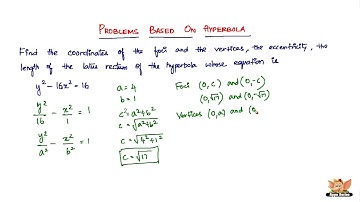 PROBLEMS BASED ON HYPERBOLA
Find the coordinates of the foci and the vertices, the eccentricity, the
length of the latus rectum of the hyperbola whose equation is
y² - 16x² = 16
y²/16 - x²/1 = 1
y²/a² - x²/b² = 1
a = 4
b = 1
c² = a² + b²
c = √a² + b²
c = √4² + 1²
c = √17
Foci (0, c) and (0, -c)
(0, √17) and (0, -√17)
Vertices (0, a) and (0,